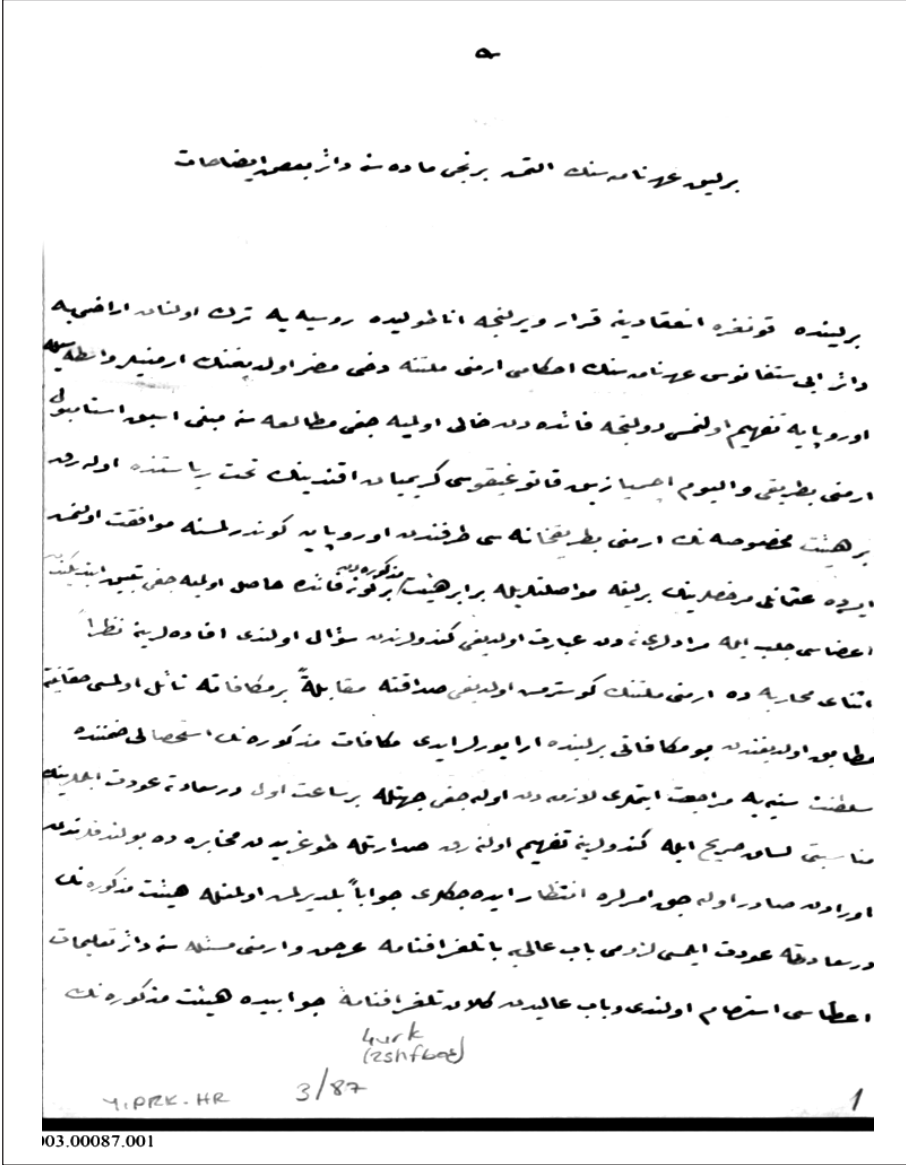 ۵
برلین عهدنامه‌سنك التمش برنجی ماده‌سنه دائر بعض ایضاحات
برلینده قونغره انعقادینه قرار ویرلنجه اناطولیده روسیه‌یه ترك اولنان اراضی‌یه
دائر ایاستفانوس عهدنامه‌سنك احكامی ارمنی ملتنه دخی مضر اولدیغنك ارمنیلر واسطه‌سیله
اوروپایه تفهیم اولنمسی دولتجه فائده‌دن خالی اولمیه‌جغی مطالعه‌سنه مبنی اسبق استانبول
ارمنی بطریقی والیوم اچمیازین قاتوغیقوسی كریمیان افندینك تحت ریاستنده اوله‌رق
بر هیئت مخصوصه‌نك ارمنی بطریقخانه‌سی طرفندن اوروپایه كوندرلمسنه موافقت اولنمش
ایسه‌ده عثمانلی مرخصلرینك برلینه مواصلتلریله برابر هیئت مذكوره‌دن بر كونه فائده حاصل اولمیه‌جغی تبین ایتدیكندن
اعضاسی جلب ایله مرادلری نه‌دن عبارت اولدیغی كندولرندن سؤال اولندی افاده‌لرینه نظراً
اثنای محاربه‌ده ارمنی ملتنك كوسترمش اولدیغی صداقته مقابلةً بر مكافاته نائل اولمسی حقانیته
مطابق اولدیغندن بو مكافاتی برلینده ارایورلر ایدی مكافات مذكوره‌نك استحصالی ضمننده
سلطنت سنیه‌یه مراجعت ایتمه‌لری لازمه‌دن اوله‌جغی جهتله بر ساعت اول درسعادته عودت ایلملرینك
مناسبتی لسان صریح ایله كندولرینه تفهیم اولنه‌رق صدارتله طوغریدن مخابره‌ده بولندقلرندن
اورادن صادر اوله‌جق امرلره انتظار ایده‌جكلری جواباً بلدیرلمش اولمغله هیئت مذكوره‌نك
درسعادته عودت ایلمسی لزومی باب عالی‌یه با تلغرافنامه عرض و ارمنی مسئله‌سنه دائر تعلیمات
اعطاسی استرحام اولندی و باب عالیدن كلان تلغرافنامهٔ جوابیده هیئت مذكوره‌نك
3/87
Y.PRK.HR
1
003.00087.001